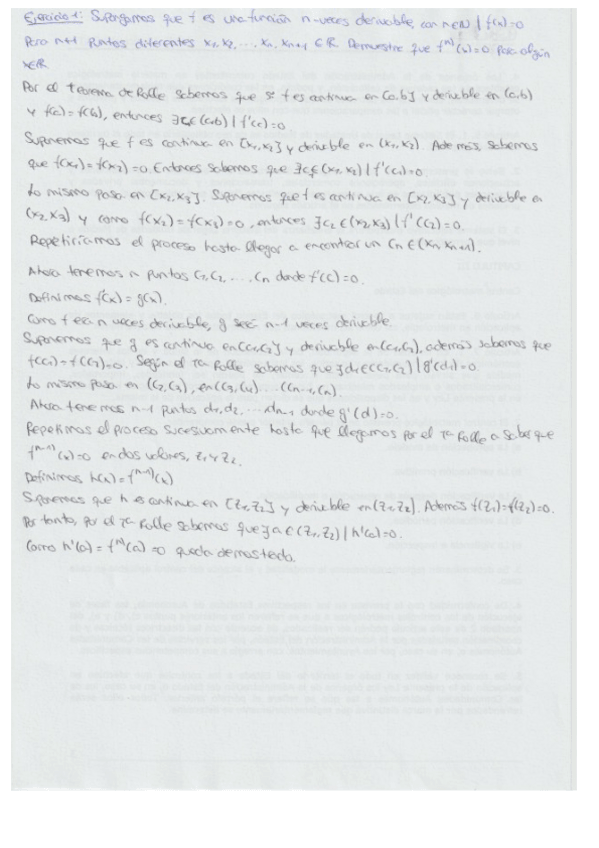 Ejercicio 1: Supongamos que f es una función n veces derivable, con n∈N | f(x)=0
Para n+1 puntos diferentes x1, x2, ... xn, xn+1 ∈ R. Demuestre que f^(n)(x)=0 para algún
x∈R
Por el teorema de Rolle sabemos que si f es continua en [a,b] y derivable en (a,b)
y f(a)=f(b), entonces ∃c∈(a,b) | f'(c)=0
Suponemos que f es continua en [x1,x2] y derivable en (x1,x2). Además, sabemos
que f(x1)=f(x2)=0. Entonces sabemos que ∃c1∈(x1,x2) | f'(c1)=0.
Lo mismo pasa en [x2,x3]. Suponemos que f es continua en [x2,x3] y derivable en
(x2,x3) y como f(x2)=f(x3)=0, entonces ∃c2∈(x2,x3) | f'(c2)=0.
Repetiríamos el proceso hasta llegar a encontrar un Cn∈(xn,xn+1).
Ahora tenemos n puntos C1,C2, ... Cn donde f'(c)=0.
Definimos f'(x)=g(x).
Como f era n veces derivable, g será n-1 veces derivable.
Suponemos que g es continua en [C1,C2] y derivable en (C1,C2), además sabemos que
f(C1)=f(C2)=0. Según el Tª Rolle sabemos que ∃d1∈(C1,C2) | g'(d1)=0
Lo mismo pasa en (C2,C3), en (C3,C4) ... (Cn-1,Cn).
Ahora tenemos n-1 puntos d1,d2, ... dn-1 donde g'(d)=0.
Repetimos el proceso sucesivamente hasta que llegamos por el Tª Rolle a saber que
f^(n-1)(x)=0 en dos valores, z1 y z2.
Definimos h(x)=f^(n-1)(x)
Suponemos que h es continua en [z1,z2] y derivable en (z1,z2]. Además f(z1)=f(z2)=0.
Por tanto, por el Tª Rolle sabemos que ∃a∈(z1,z2) | h'(a)=0.
Como h'(a)=f^(n)(a)=0 queda demostrado.